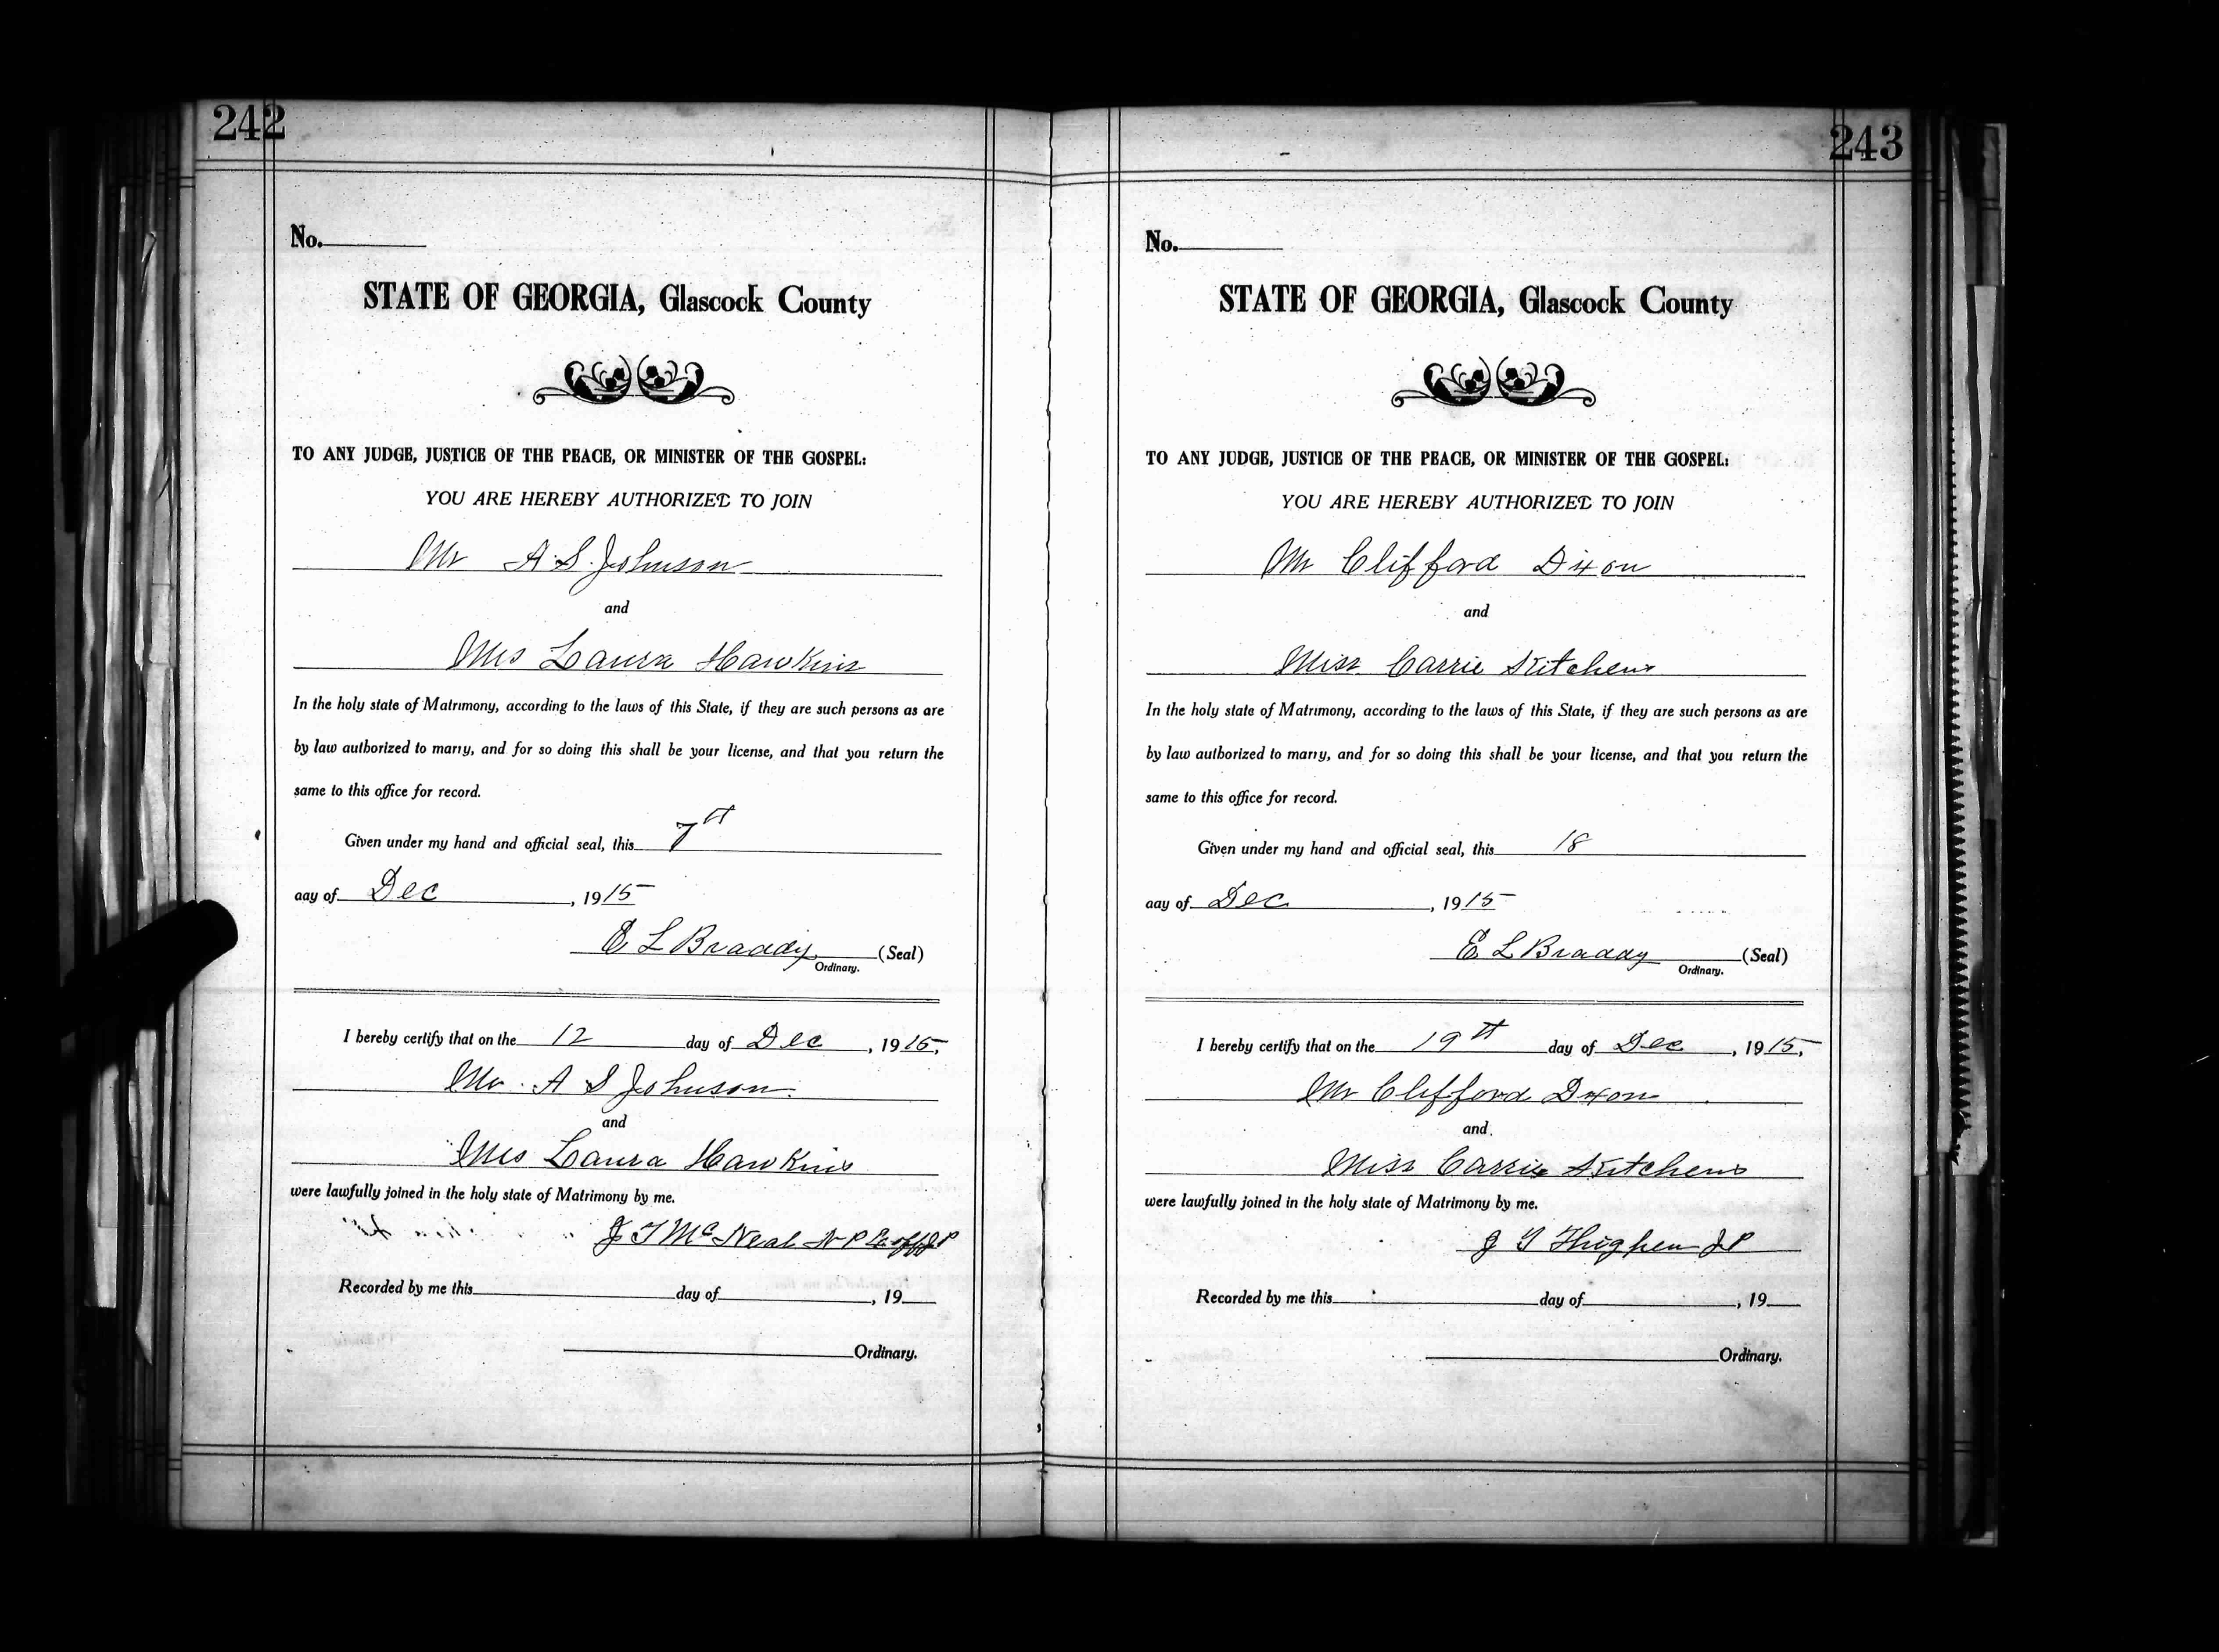 242
No.
STATE OF GEORGIA, Glascock County
TO ANY JUDGE, JUSTICE OF THE PEACE, OR MINISTER OF THE GOSPEL:
YOU ARE HEREBY AUTHORIZED TO JOIN
Mr A. S. Johnson
and
Mrs Laura Hawkins
In the holy state of Matrimony, according to the laws of this State, if they are such persons as are
by law authorized to marry, and for so doing this shall be your license, and that you return the
same to this office for record.
Given under my hand and official seal, this 7th
day of Dec, 1915
E L Braddy (Seal)
Ordinary.
I hereby certify that on the 12 day of Dec, 1915,
Mr. A S Johnson
and
Mrs Laura Hawkins
were lawfully joined in the holy state of Matrimony by me.
J T McNeal N P J P
Recorded by me this day of , 19
Ordinary.
243
No.
STATE OF GEORGIA, Glascock County
TO ANY JUDGE, JUSTICE OF THE PEACE, OR MINISTER OF THE GOSPEL:
YOU ARE HEREBY AUTHORIZED TO JOIN
Mr Clifford Dixon
and
Miss. Carrie Kitchens
In the holy state of Matrimony, according to the laws of this State, if they are such persons as are
by law authorized to marry, and for so doing this shall be your license, and that you return the
same to this office for record.
Given under my hand and official seal, this 18
day of Dec, 1915
E L Braddy (Seal)
Ordinary.
I hereby certify that on the 19th day of Dec, 1915,
Mr Clifford Dixon
and.
Miss Carrie Kitchens
were lawfully joined in the holy state of Matrimony by me.
J P
Recorded by me this day of , 19
Ordinary.